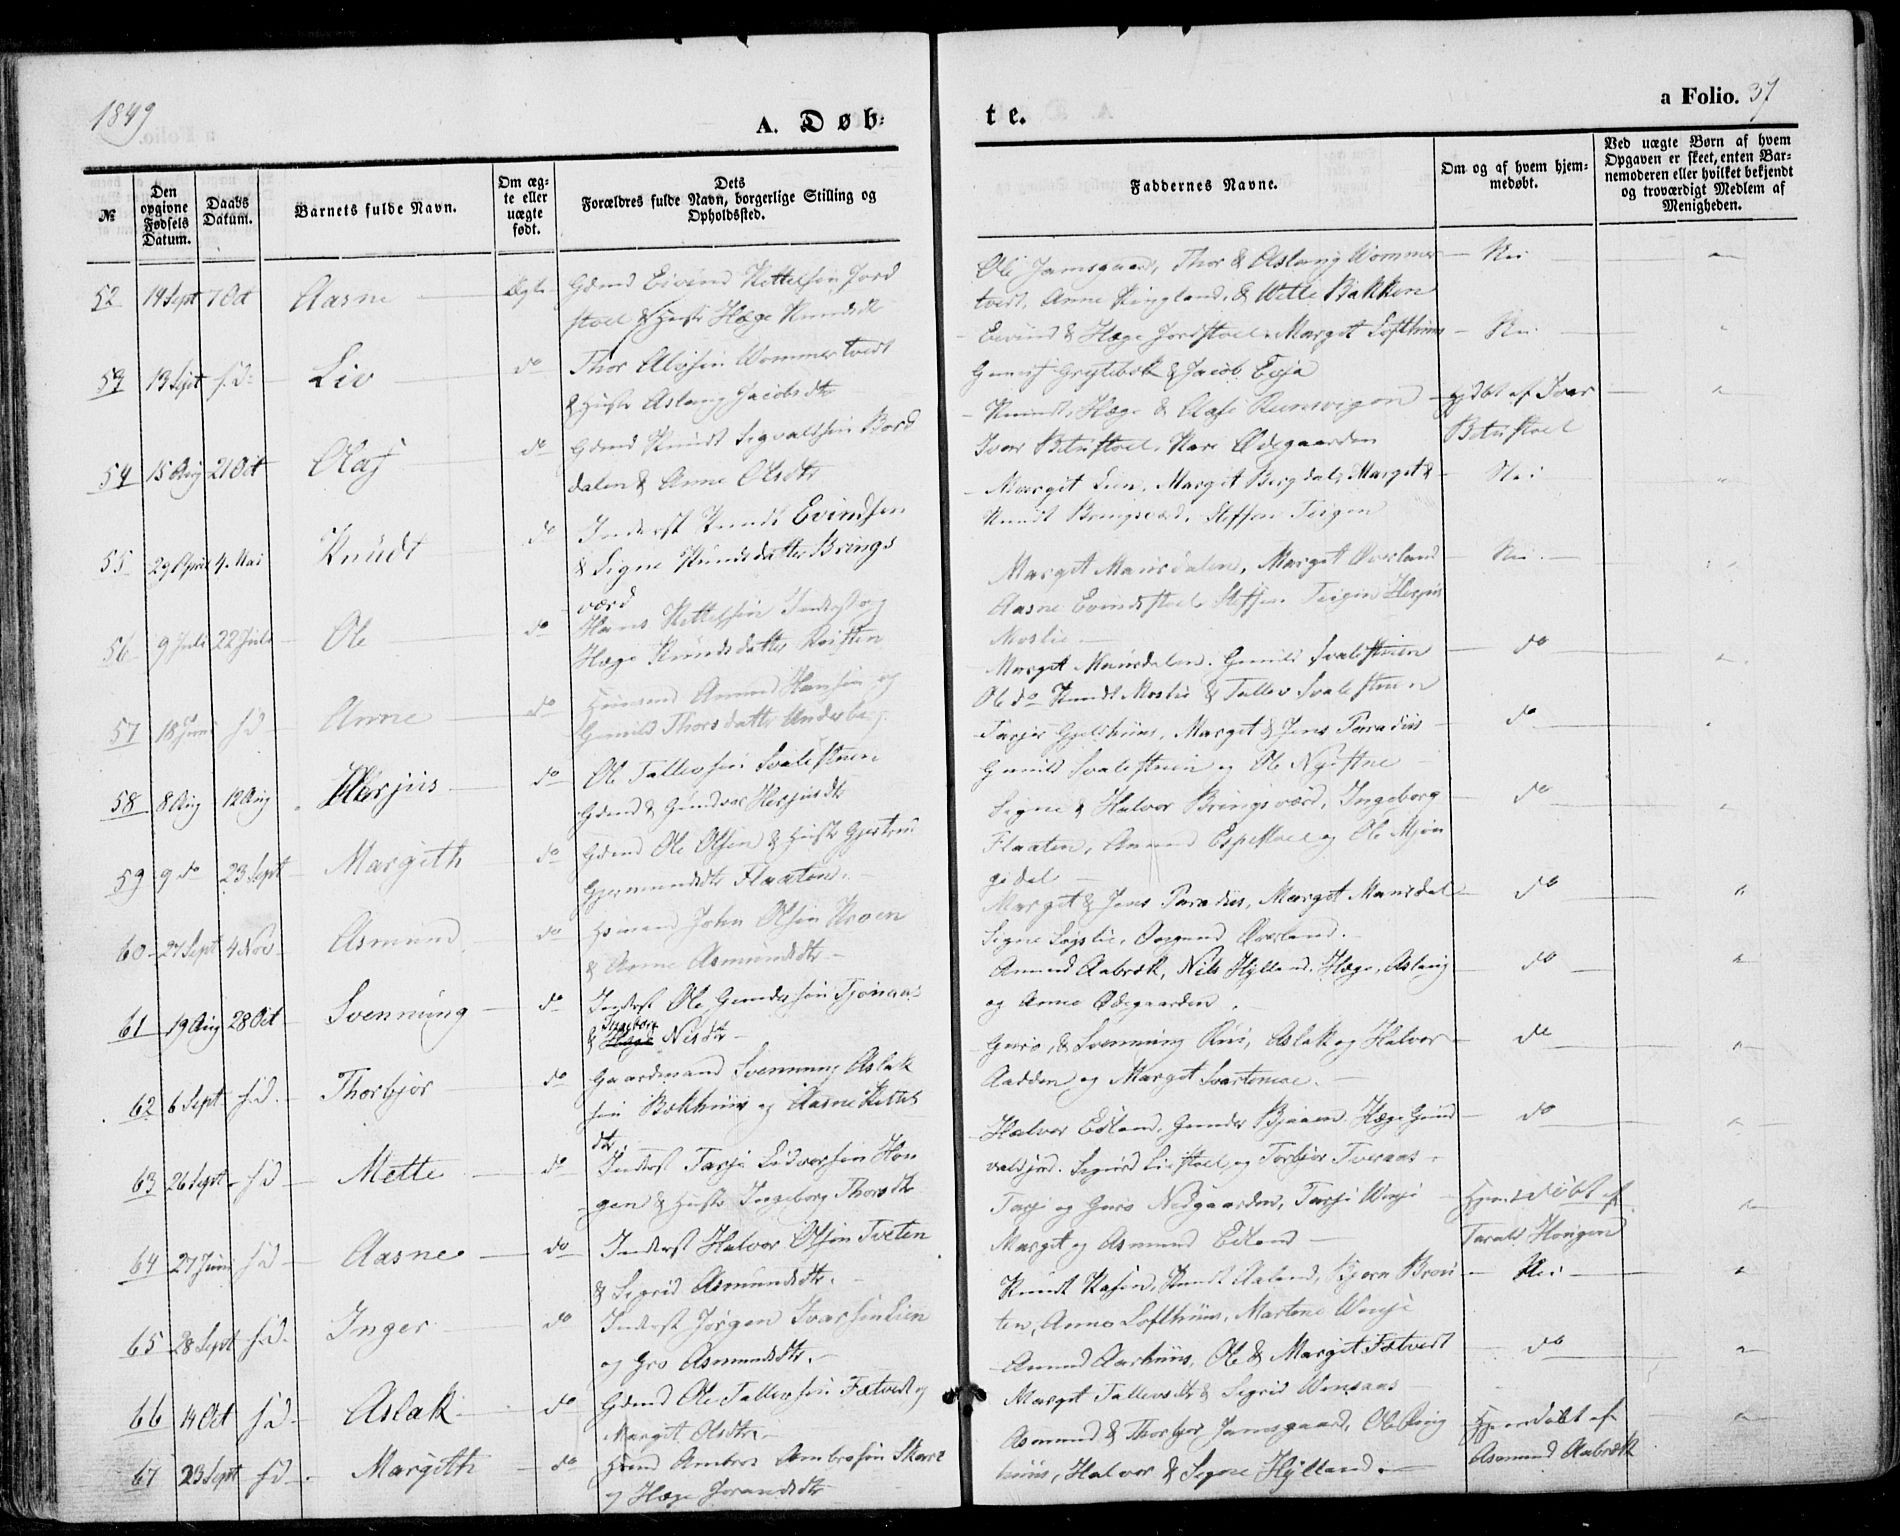 1849
A. Døb-
te.
a Folio. 37
№
Den opgivne Fødsels Datum.
Daabs Datum.
Barnets fulde Navn.
Om æg-
te eller
uægte
født.
Dets
Forældres fulde Navn, borgerlige Stilling og
Opholdssted.
Faddernes Navne.
Om og af hvem hjem-
medøbt.
Ved uægte Børn af hvem
Opgaven er skeet, enten Bar-
nemoderen eller hvilket bekjendt
og troværdigt Medlem af
Menigheden.
52 14 Sept 7 Oct Aasne Ægte Gdmd Eivind Kettelsen Jord
stoel & Hustr Hæge Knudsdtr
Ole Jamsgaard, Thor & Aslaug Wommer Nei
tvedt, Anne Ringland & Mette Bakken
53 13 Sept s.d. Liv do Thor Olavsen Wommertvedt
& Hustr Aslaug Jacobsdtr
Eivind & Hæge Jordstoel Margit Lofthuus Nei
Grytebæk & Jacob Eeja
54 15 Aug 21 Oct Olaf do Gdmd Knudt Sigvaldsen Bord
dalen & Anne Olsdtr
Knudt, Hæge & Aase hjdbt af Ivar
Ivar Bitustoel, Kari Ødegaarden Bitustoel
55 29 April 4 Mai Knudt do Inderst Knudt Evindsen
& Signe Knudsdatter Brings
værd
Margit Lien, Margit Bergdal, Margit & Nei
Knudt Bringsværd, Steffen Teigen
56 9 Juli 22 Juli Ole do Hans Kettelsen Inderst og
Hæge Knudsdatter Kvitten
Margit Mausdalen, Margit Øverland Nei
Aasne Evindstoel Steffen Teigen Herjus
Moslie
57 18 Juni s.d Anne do Huusmd Amund Hansen og
Gunild Thorsdatter Underberg
Margit Mausdalen. Gunild Svalestuen do
Ole do Knudt Moslie & Tallev Svalestuen
58 8 Aug 12 Aug Herjus do Ole Tallevsen Svalestuen
Gdmd & Gundvor Herjusdtr
Tarjer Gjelhuus, Margit & Jens Paradiis do
Gunild Svalestuen og Ole Nystue
59 9 do 23 Sept Margith do Gdmd Ole Olsen & Hustr Gjertru
Gjermundsdtr Flaaten.
Signe & Halvor Bringsværd, Ingeborg do
Flaaten, Amund Espestoel og Ole Mjøn
gedal
60 27 Sept 4 Nov Asmund do Hsmand John Olsen Kroen
& Anne Asmundsdtr
Margit & Jens Paradiis, Margit Mausdal do
Signe Løyslie, Øverland.
61 19 Aug 28 Oct Svennung do Inderst Ole Gundersen Tjønaas
& Ingeborg Nisdtr
Amund Aabræk, Nils Hylland. Hæge, Aslaug do
og Anne Ødegaarden.
62 6 Sept s.d. Thorbjør do Gaardmand Svennung Aslak
sen Bækhuus og Aasne Kettels
dtr
Guro, & Svennung Rui, Aslak og Halvor do
Aadden og Margit Svartemoe.
63 26 Sept s.d Mette do Inderst Tarje Eidversen Hon
gen & Hustr Ingeborg Thorsdtr
Halvor Edland, Gunder Bjaaen. Hæge Grind
valdjord. Sigurd Liestoel og Torbjør Tveraas do
64 27 Juni s.d Aasne do Inderst Halvor Olsen Tveten
& Sigrid Asmundsdtr.
Tarje og Guro Nedgaarden, Tarje Winje Hjemdøbt af
Margit og Asmund Edland Tarald Hongen
65 28 Sept s.d. Inger do Inderst Jørgen Ivarsen Lien
og Gro Asmundsdtr.
Knudt Kasen, Knudt Aaland, Bjørn Brau Nei
ten, Anne Lofthuus, Martene Winje
66 14 Oct s.d. Aslak do Gdmd Ole Tallevsen Fætvedt og
Margit Olsdtr
Amund Aarhuus, Ole & Margit Fætvedt do
Margit Tallevsdtr & Sigrid Winsaas
67 23 Sept s.d Margith do Hsmd Anders Ambrosen Skare
og Hæge Jorandsdtr
Asmund & Thorbjør Jamsgaard, Ole Hjemdøbt af
huus, Halvor & Signe Hylland. Asmund Aabræk